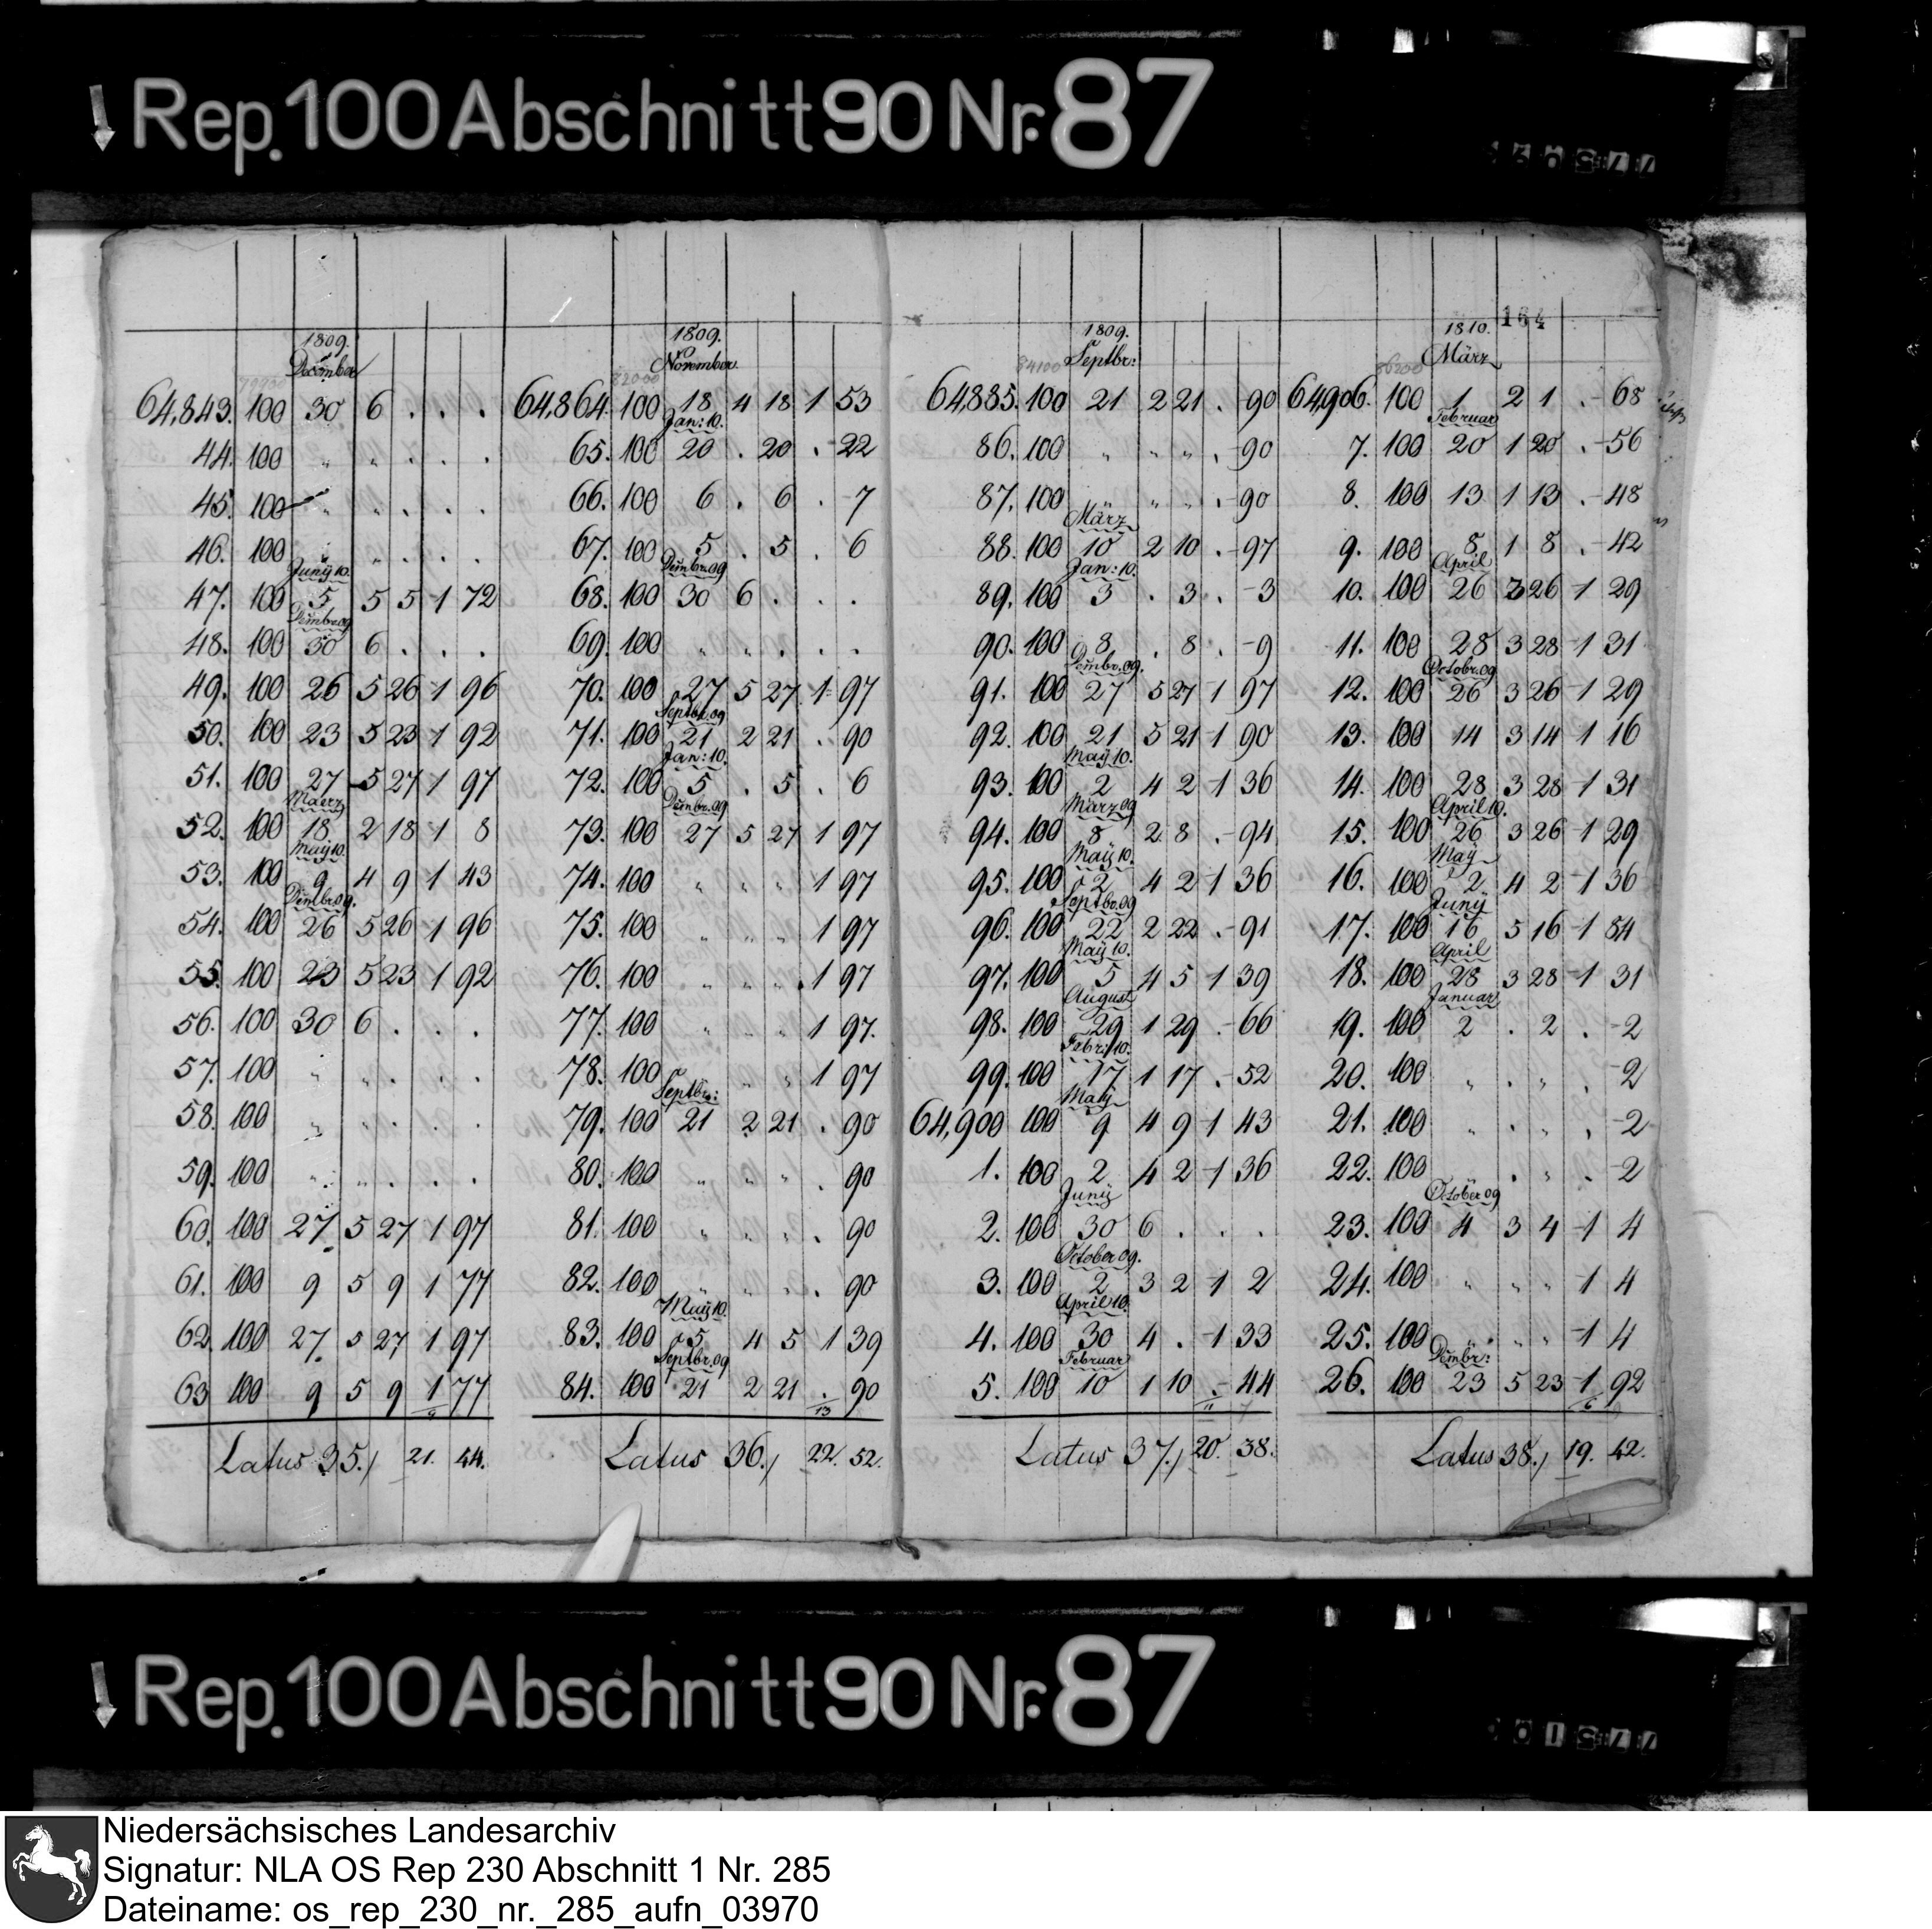 Rep. 100 Abschnitt 90 Nr. 87
164
1809.
December
79900
64,843. 100 30 6 . . .
44. 100 " " . . .
45. 100 " " . . .
46. 100 " " . . .
Juny 10.
47. 100 5 5 5 1 72
Dembr. 09
48. 100 30 6 . . .
49. 100 26 5 26 1 96
50. 100 23 5 23 1 92
51. 100 27 5 27 1 97
Maerz
52. 100 18 2 18 1 8
May 10.
53. 100 9 4 9 1 43
Dembr. 09.
54. 100 26 5 26 1 96
55. 100 23 5 23 1 92
56. 100 30 6 . . .
57. 100 " " . . .
58. 100 " " . . .
59. 100 " " . . .
60. 100 27 5 27 1 97
61. 100 9 5 9 1 77
62. 100 27 5 27 1 97
63 100 9 5 9 1 77
Latus 35./ 21. 44.
1809.
November
82000
64,864. 100 18 4 18 1 53
Jan: 10.
65. 100 20 . 20 . 22
66. 100 6 . 6 . 7
67. 100 5 . 5 . 6
Dembr. 09
68. 100 30 6 . . .
69. 100 " " . . .
70. 100 27 5 27 1 97
Septbr. 09
71. 100 21 2 21 . 90
Jan: 10.
72. 100 5 . 5 . 6
Dembr. 09
73. 100 27 5 27 1 97
74. 100 " " " 1 97
75. 100 " " " 1 97
76. 100 " " " 1 97
77. 100 " " " 1 97.
78. 100 " " " 1 97
Septbr:
79. 100 21 2 21 . 90
80. 100 " " " . 90
81. 100 " " " . 90
82. 100 " " " . 90
May 10.
83. 100 5 4 5 1 39
Septbr. 09
84. 100 21 2 21 . 90
13
Latus 36./ 22. 52.
1809.
Septbr:
84100
64,885. 100 21 2 21 . 90
86. 100 " " " . 90
87. 100 " " " . 90
März
88. 100 10 2 10 . 97
Jan: 10.
89. 100 3 . 3 . 3
90. 100 8 . 8 . 9
Dembr. 09.
91. 100 27 5 27 1 97
92. 100 21 5 21 1 90
May 10.
93. 100 2 4 2 1 36
März 09
94. 100 8 2 8 . 94
May 10.
95. 100 2 4 2 1 36
Septbr. 09
96. 100 22 2 22 . 91
May 10.
97. 100 5 4 5 1 39
August
98. 100 29 1 29 . 66
Febr: 10.
99. 100 17 1 17 . 52
May
64,900 100 9 4 9 1 43
1. 100 2 4 2 1 36
Juny
2. 100 30 6 . . .
October 09.
3. 100 2 3 2 1 2
April 10.
4. 100 30 4 . 1 33
Februar
5. 100 10 1 10 . 44
11
Latus 37./ 20. 38.
1810.
März
86200
64,906. 100 1 2 1 . 68
Februar
7. 100 20 1 20 . 56
8. 100 13 1 13 . 48
9. 100 8 1 8 . 42
April
10. 100 26 3 26 1 29
11. 100 28 3 28 1 31
Octobr. 09
12. 100 26 3 26 1 29
13. 100 14 3 14 1 16
14. 100 28 3 28 1 31
April 10.
15. 100 26 3 26 1 29
May
16. 100 2 4 2 1 36
Juny
17. 100 16 5 16 1 84
April
18. 100 28 3 28 1 31
Januar
19. 100 2 . 2 . 2
20. 100 " . " . 2
21. 100 " . " . 2
22. 100 " . " . 2
October 09
23. 100 4 3 4 1 4
24. 100 " " " 1 4
25. 100 " " " 1 4
Dembr:
26. 100 23 5 23 1 92
6
Latus 38./ 19. 42.
Rep. 100 Abschnitt 90 Nr. 87
Niedersächsisches Landesarchiv
Signatur: NLA OS Rep 230 Abschnitt 1 Nr. 285
Dateiname: os_rep_230_nr._285_aufn_03970